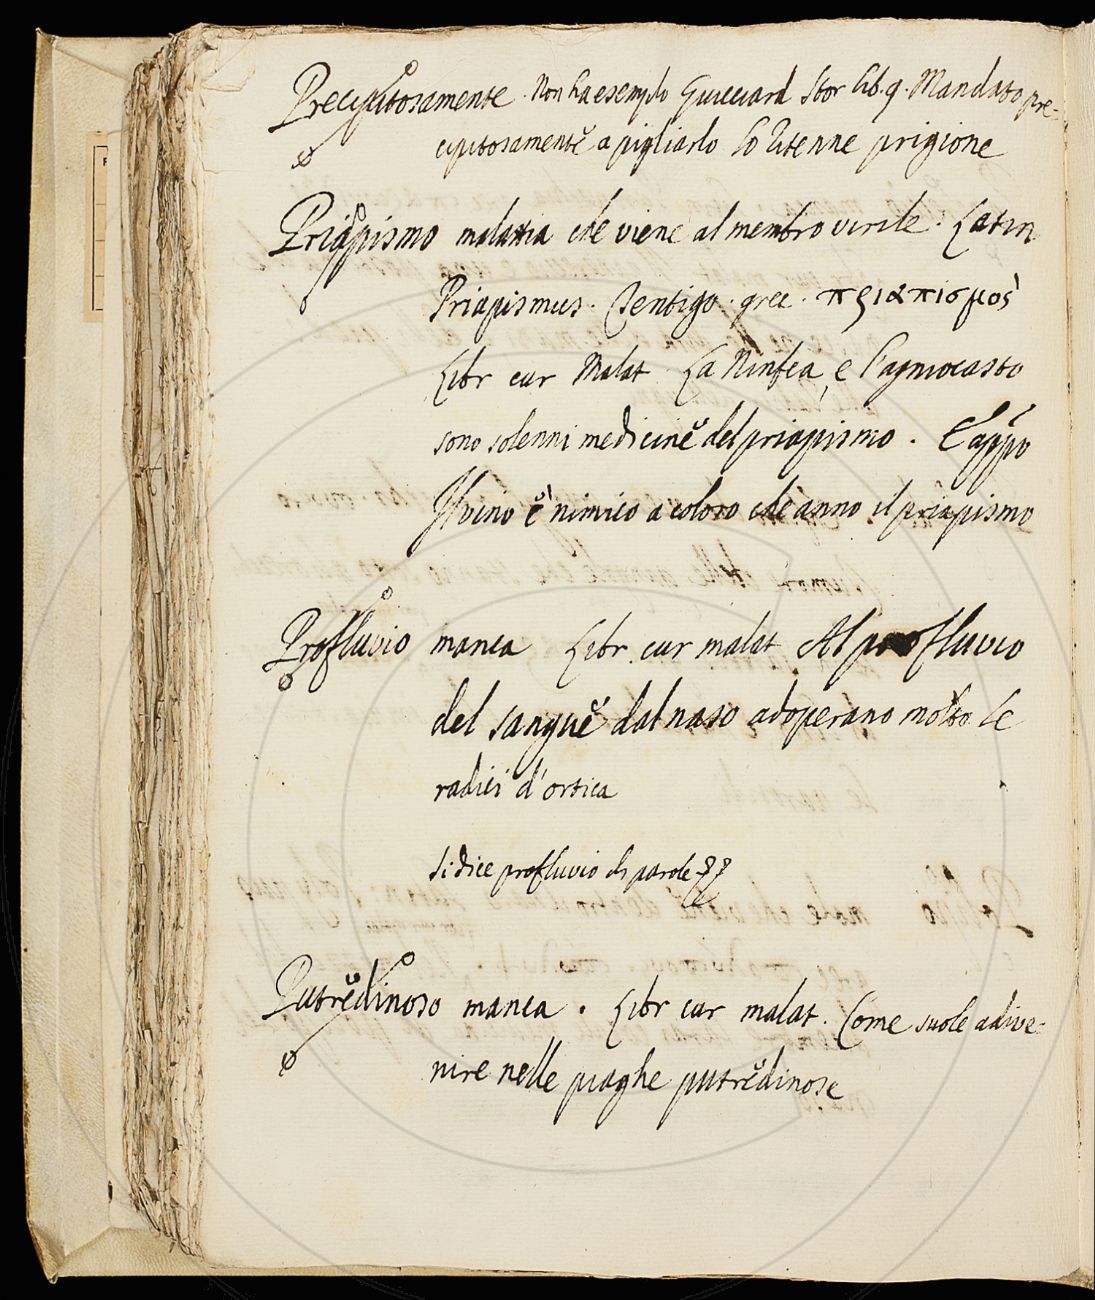 Precipitosamente. Non ha esemplo Guicciard Stor lib. 9. Mandato pre-
cipitosamente a pigliarlo lo ritenne prigione
Priapismo malattia che viene al membro virile. Latin
Priapismus. Tentigo. grec. πριαπισμος
Libr cur Malat. La Ninfea, e l'agnocasto
sono solenni medicine del priapismo. E appo
Il vino è nimico a coloro che anno il priapismo
Profluvio manca Libr. cur malat Al profluvio
del sangue dal naso adoperano molto le
radici d'ortica
si dice profluvio di parole
Putredinoso manca. Libr cur malat. Come suole adive-
nire nelle piaghe putredinose